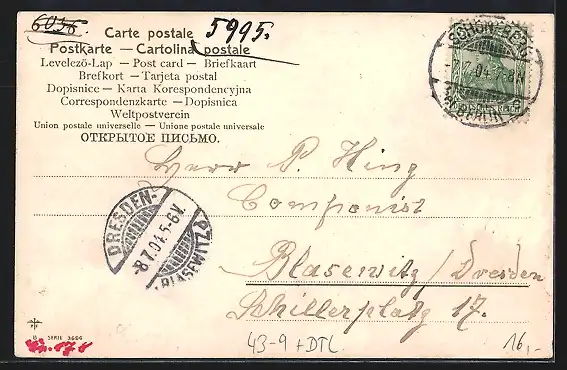 6036.
Carte postale 5995.
Postkarte — Cartolina postale
Levelező-Lap — Post card — Briefkaart
Brefkort — Tarjeta postal
Dopisnice — Karta Korespondencyjna
Correspondenzkarte — Dopisnica
Weltpostverein
Union postale universelle — Unione postale universale
ОТКРЫТОЕ ПИСЬМО.
SCHÖNEBERG
7.7.04. 7-8 N
BERLIN
Herr P. Hing
Componist
Blasewitz/Dresden
Schillerplatz 17.
DRESDEN-
8 7.04. 5-6 V.
BLASEWITZ
SERIE 3696
43-9 + DTL
16,-